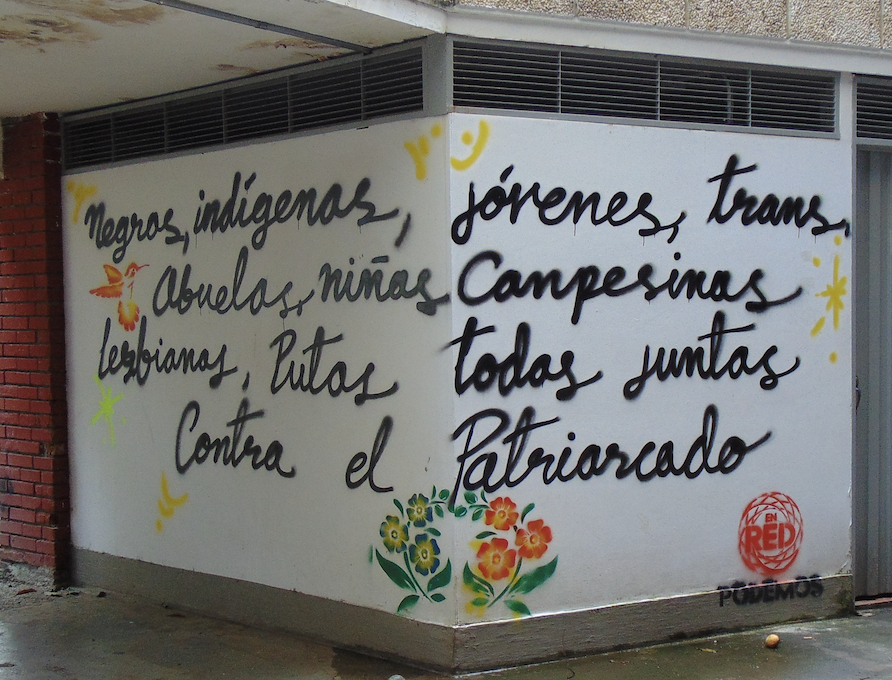 Negras, indígenas, jóvenes, trans,
Abuelas, niñas Campesinas
lesbianas, Putas todas juntas
Contra el Patriarcado
EN
RED
PODEMOS